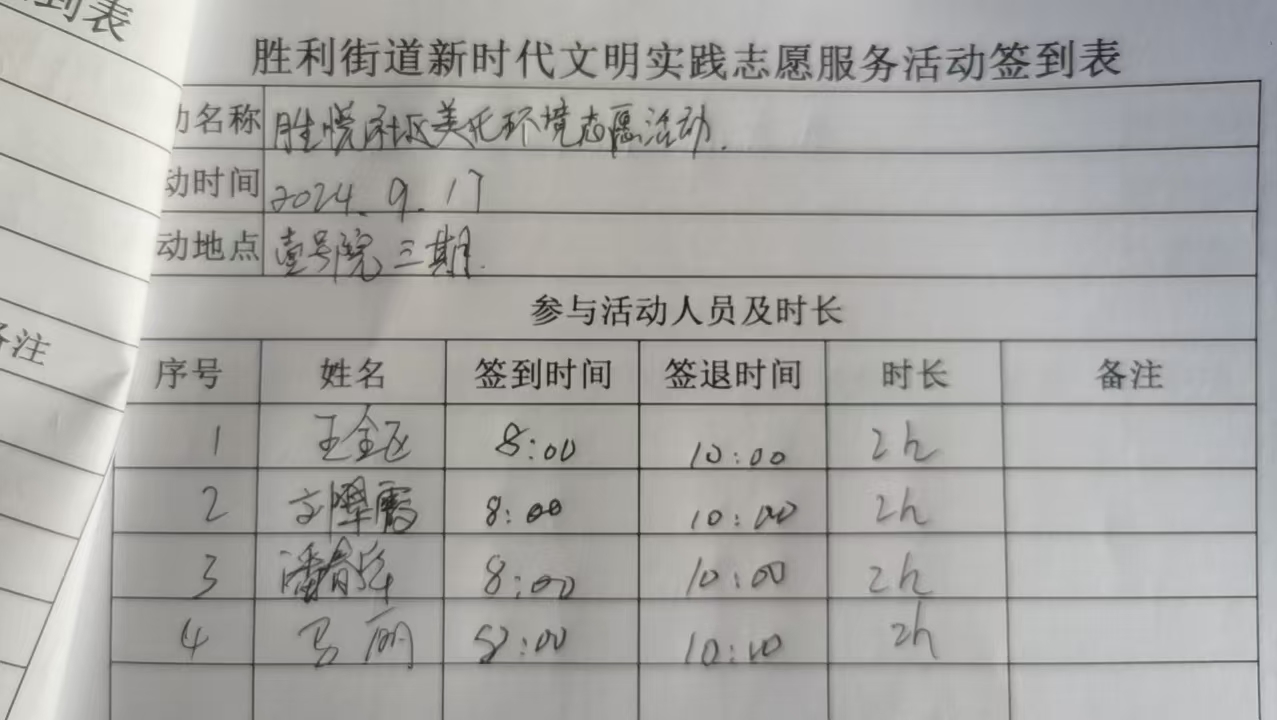 到表
胜利街道新时代文明实践志愿服务活动签到表
动名称 胜悦社区美化环境志愿活动.
动时间 2024.9.17
动地点 壹号院三期.
参与活动人员及时长
备注
序号 姓名 签到时间 签退时间 时长 备注
1 8:00 10:00 2h
2 8:00 10:00 2h
3 潘 8:00 10:00 2h
4 马丽 8:00 10:00 2h